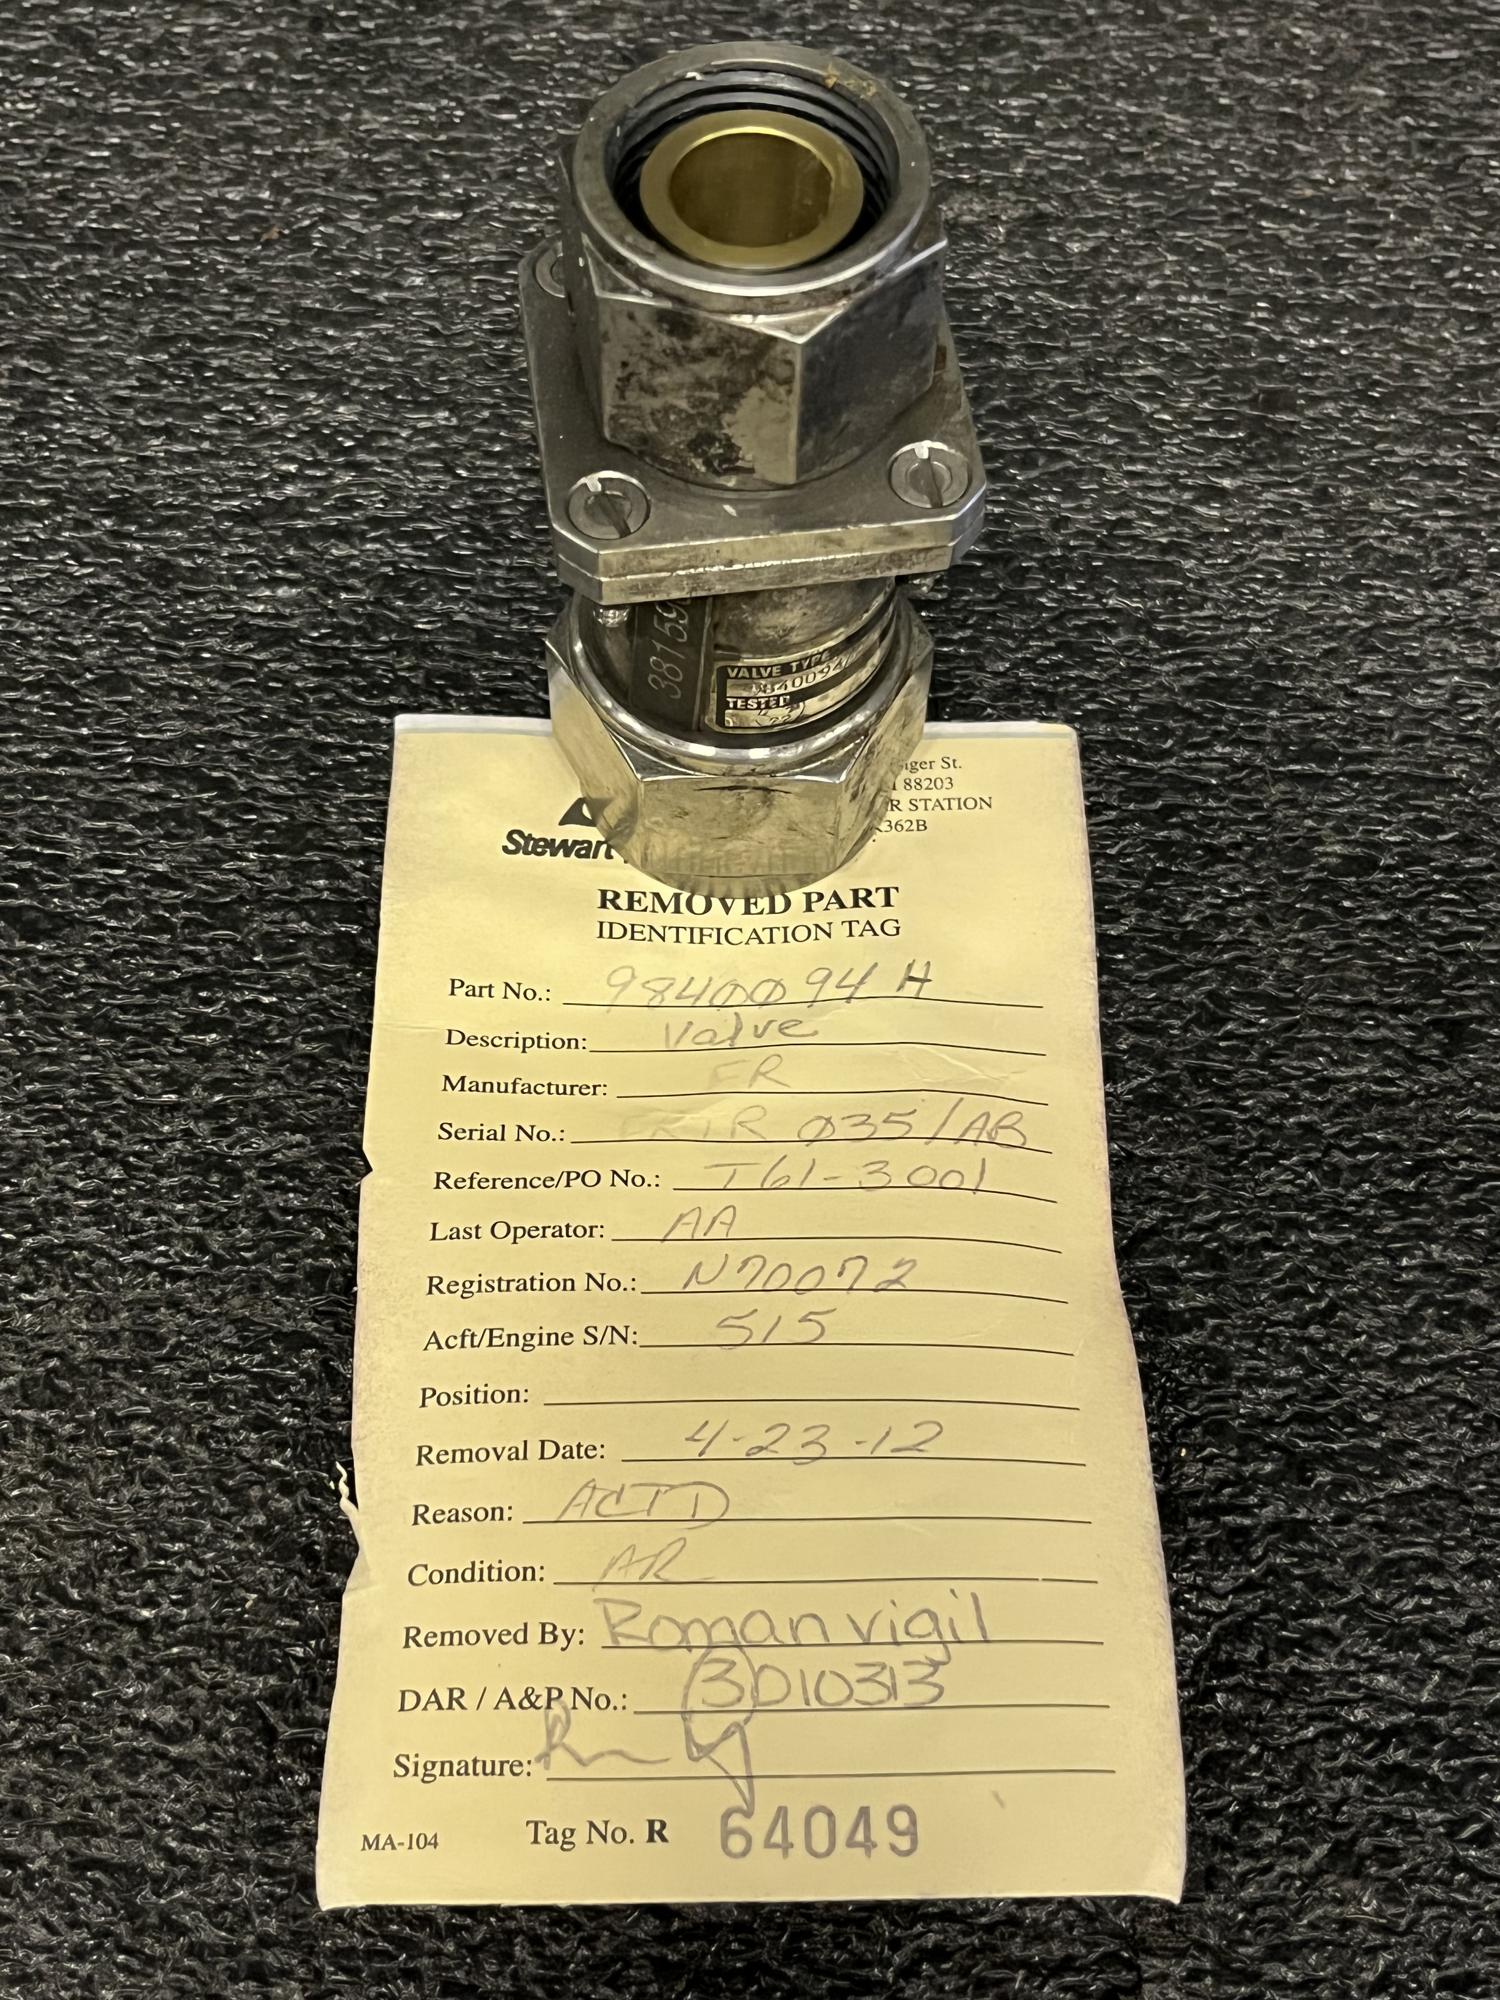 38159
VALVE TYPE
TESTED
iger St.
88203
R STATION
362B
Stewart
REMOVED PART
IDENTIFICATION TAG
Part No.: 9840094 H
Description: Valve
Manufacturer: FR
Serial No.: 035/AB
Reference/PO No.: T61-3001
Last Operator: AA
Registration No.: N70072
Acft/Engine S/N: 515
Position:
Removal Date: 4-23-12
Reason: ACTD
Condition: AR
Removed By: Roman vigil
DAR / A&P No.: 3010313
Signature:
MA-104 Tag No. R 64049